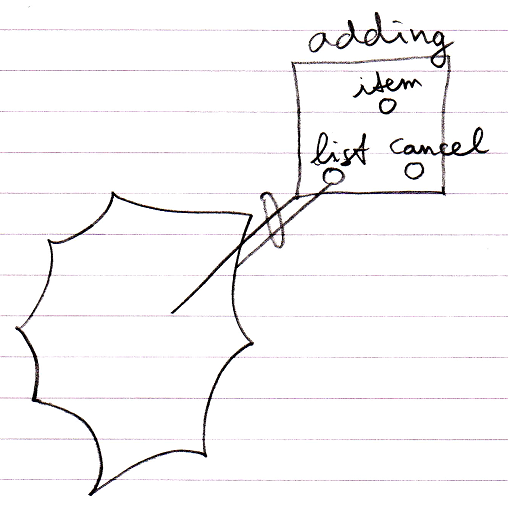 adding
item
list cancel